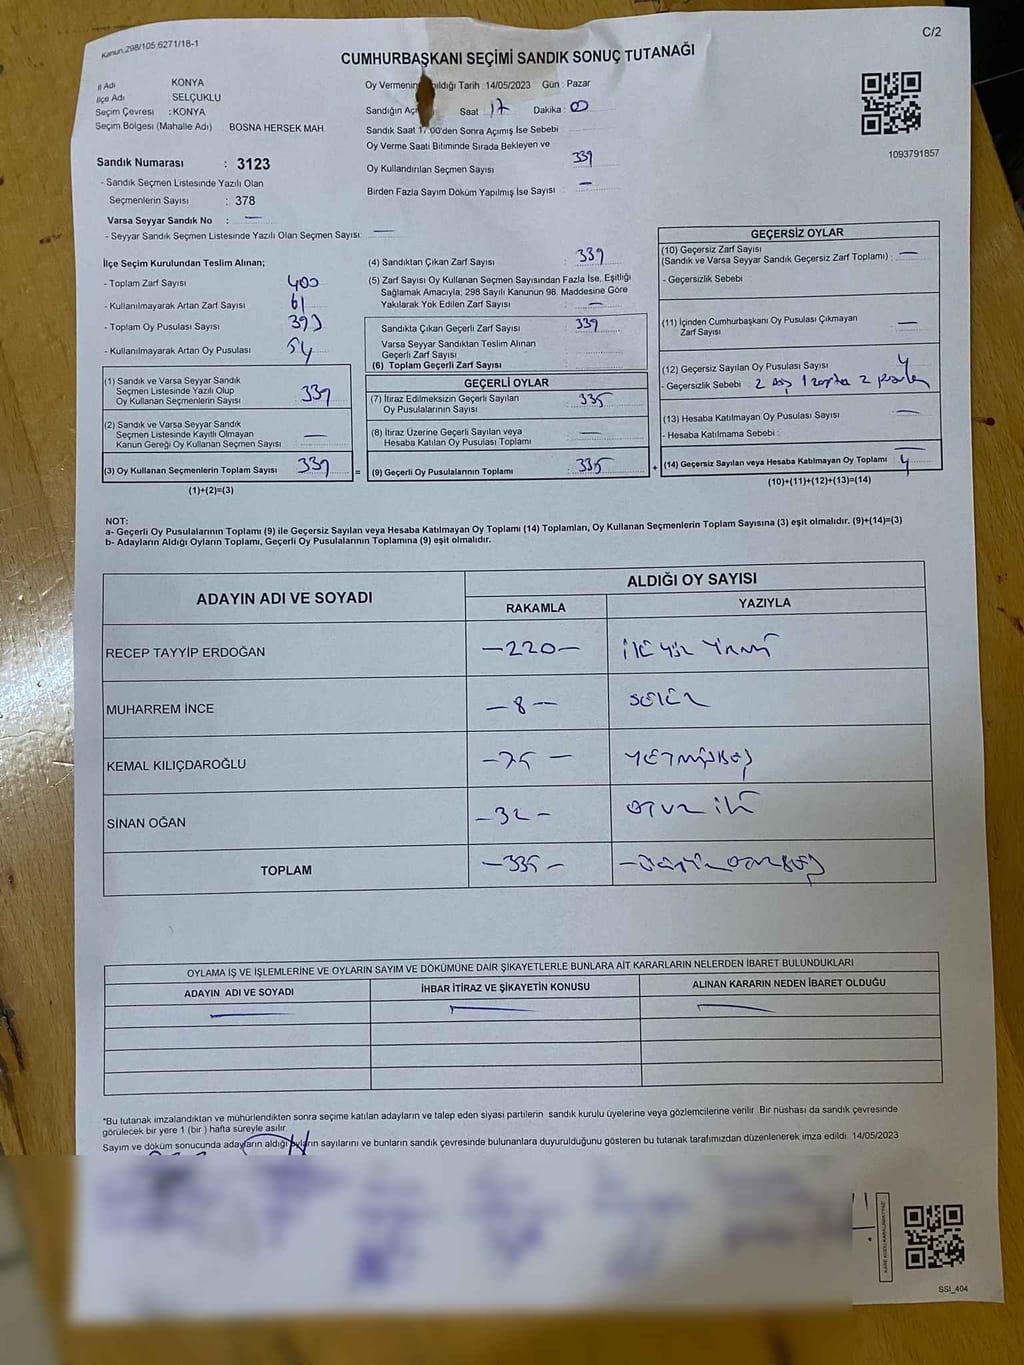 Kanun:298/105;6271/18-1
C/2
CUMHURBAŞKANI SEÇİMİ SANDIK SONUÇ TUTANAĞI
İl Adı KONYA
İlçe Adı SELÇUKLU
Seçim Çevresi : KONYA
Seçim Bölgesi (Mahalle Adı) BOSNA HERSEK MAH.
Sandık Numarası : 3123
- Sandık Seçmen Listesinde Yazılı Olan
Seçmenlerin Sayısı : 378
Varsa Seyyar Sandık No : —
- Seyyar Sandık Seçmen Listesinde Yazılı Olan Seçmen Sayısı: —
Oy Vermenin Tarih :14/05/2023 Gün : Pazar
Sandığın Saat 17 Dakika : 00
Sandık Saat 17:00'den Sonra Açımış İse Sebebi
Oy Verme Saati Bitiminde Sırada Bekleyen ve
Oy Kullandırılan Seçmen Sayısı 339
Birden Fazla Sayım Döküm Yapılmış İse Sayısı : —
1093791857
İlçe Seçim Kurulundan Teslim Alınan;
- Toplam Zarf Sayısı : 400
- Kullanılmayarak Artan Zarf Sayısı : 61
- Toplam Oy Pusulası Sayısı : 393
- Kullanılmayarak Artan Oy Pusulası : 54
(1) Sandık ve Varsa Seyyar Sandık
Seçmen Listesinde Yazılı Olup
Oy Kullanan Seçmenlerin Sayısı : 339
(2) Sandık ve Varsa Seyyar Sandık
Seçmen Listesinde Kayıtlı Olmayan
Kanun Gereği Oy Kullanan Seçmen Sayısı : —
(3) Oy Kullanan Seçmenlerin Toplam Sayısı : 339
(1)+(2)=(3)
=
(4) Sandıktan Çıkan Zarf Sayısı : 339
(5) Zarf Sayısı Oy Kullanan Seçmen Sayısından Fazla İse, Eşitliği
Sağlamak Amacıyla, 298 Sayılı Kanunun 98. Maddesine Göre
Yakılarak Yok Edilen Zarf Sayısı : —
Sandıkta Çıkan Geçerli Zarf Sayısı : 339
Varsa Seyyar Sandıktan Teslim Alınan
Geçerli Zarf Sayısı :
(6) Toplam Geçerli Zarf Sayısı :
GEÇERLİ OYLAR
(7) İtiraz Edilmeksizin Geçerli Sayılan
Oy Pusulalarının Sayısı : 335
(8) İtiraz Üzerine Geçerli Sayılan veya
Hesaba Katılan Oy Pusulası Toplamı : —
(9) Geçerli Oy Pusulalarının Toplamı : 335
+
GEÇERSİZ OYLAR
(10) Geçersiz Zarf Sayısı
(Sandık ve Varsa Seyyar Sandık Geçersiz Zarf Toplamı) : —
- Geçersizlik Sebebi :
(11) İçinden Cumhurbaşkanı Oy Pusulası Çıkmayan
Zarf Sayısı : —
(12) Geçersiz Sayılan Oy Pusulası Sayısı : 4
- Geçersizlik Sebebi : 2
(13) Hesaba Katılmayan Oy Pusulası Sayısı : —
- Hesaba Katılmama Sebebi :
(14) Geçersiz Sayılan veya Hesaba Katılmayan Oy Toplamı : 4
(10)+(11)+(12)+(13)=(14)
NOT:
a- Geçerli Oy Pusulalarının Toplamı (9) ile Geçersiz Sayılan veya Hesaba Katılmayan Oy Toplamı (14) Toplamları, Oy Kullanan Seçmenlerin Toplam Sayısına (3) eşit olmalıdır. (9)+(14)=(3)
b- Adayların Aldığı Oyların Toplamı, Geçerli Oy Pusulalarının Toplamına (9) eşit olmalıdır.
ADAYIN ADI VE SOYADI ALDIĞI OY SAYISI
RAKAMLA YAZIYLA
RECEP TAYYİP ERDOĞAN —220— iki yüz yirmi
MUHARREM İNCE —8— sekiz
KEMAL KILIÇDAROĞLU —75— YETMİŞBEŞ
SİNAN OĞAN —32— otuz iki
TOPLAM —335— —üçyüz otuzbeş
OYLAMA İŞ VE İŞLEMLERİNE VE OYLARIN SAYIM VE DÖKÜMÜNE DAİR ŞİKAYETLERLE BUNLARA AİT KARARLARIN NELERDEN İBARET BULUNDUKLARI
ADAYIN ADI VE SOYADI İHBAR İTİRAZ VE ŞİKAYETİN KONUSU ALINAN KARARIN NEDEN İBARET OLDUĞU
*Bu tutanak imzalandıktan ve mühürlendikten sonra seçime katılan adayların ve talep eden siyasi partilerin sandık kurulu üyelerine veya gözlemcilerine verilir. Bir nüshası da sandık çevresinde
görülecek bir yere 1 (bir ) hafta süreyle asılır.
Sayım ve döküm sonucunda adayların aldığı oyların sayılarını ve bunların sandık çevresinde bulunanlara duyurulduğunu gösteren bu tutanak tarafımızdan düzenlenerek imza edildi. 14/05/2023
SSI_404